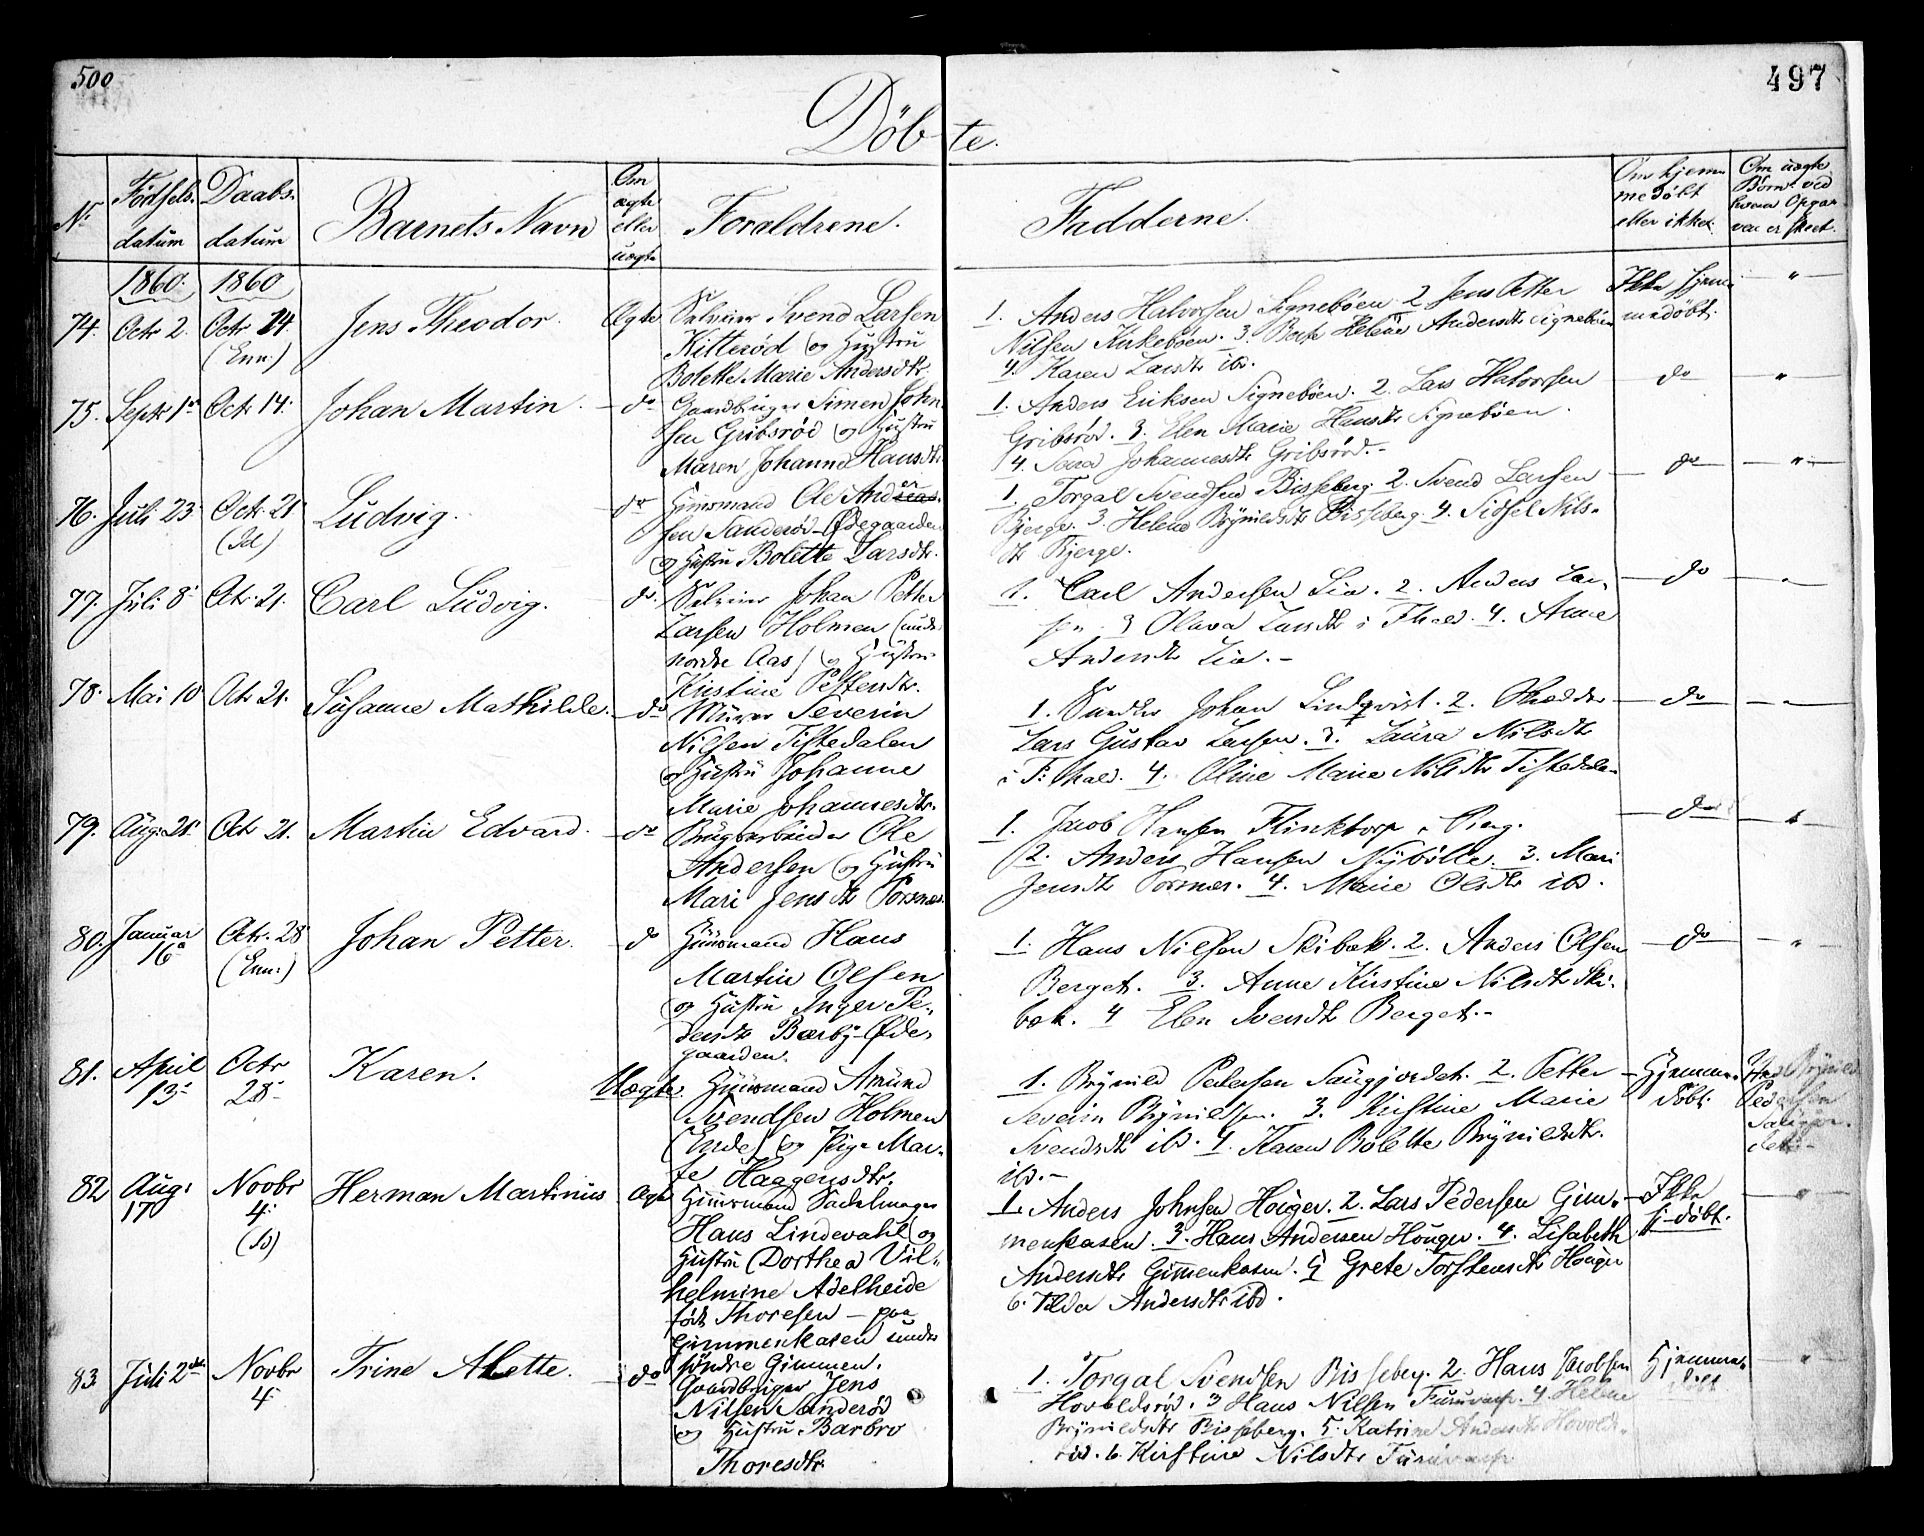 500
497
Döbte.
Nr
Födsels-
datum
Daabs-
datum
Barnets Navn
Om
ægte
eller
uægte
Forældrene.
Fadderne.
Om hjem-
medöbt
eller ikke.
Om uægte
Börn ved
hvem Opgav
ven er skeet.
1860.
1860
74.
Octr 2.
Octr 14
(Enn:)
Jens Theodor.
Ægte
Selveier Svend Larsen
Kitteröd og Hustru
Bolette Marie Andersdtr.
1. Anders Halvorsen Signeböen. 2. Jens Petter
Nilsen Kirkeböen. 3. Helene Andersdtr Signeböen
4. Karen Larsdtr ibd.
Ikke hjem-
medöbt.
"
75.
Septr 1st
Octr 14.
Johan Martin.
do
Gaardbruger Simen John-
sen Gribsröd og Hustru
Maren Johanne Hansdtr.
1. Anders Eriksen Signeböen. 2. Lars Halvorsen
Gribsröd. 3. Elen Marie Hansdtr Signeböen.
4. Johannesdtr Gribsröd.-
do
"
76.
Juli 23.
Octr. 21
Ludvig.
do
Huusmand Ole Anders-
sen Sanderöd-Ødegaarden
og Hustru Bolette Larsdtr.
1. Torgal Svendsen Bisseberg 2. Svend Larsen
Bjerge. 3. Helene Brynildsdtr Bisseberg. 4. Sidsel Nils-
dtr Bjerge.
do
"
77.
Juli 8
Octr. 21.
Carl Ludvig.
do.
Selveier Johan Petter
Larsen Holmen (under
nordre Aas) og Hustru
Kirstine Pettersdtr.
1. Carl Andersen Lia. 2. Anders Lar-
sen. 3 Olava Larsdtr i Fhald. 4. Anne
Andersdtr Lia.-
do
"
78.
Mai 10
Octr 21.
Susanne Mathilde.
do
Murer Severin
Nilsen Tistedalen
og Hustru Johanne
Marie Johannesdtr.
1. Johan Lindqvist. 2.
Lars Gustav Larsen. 3. Laura Nilsdtr
i F: hald. 4. Oline Marie Nilsdtr Tistedalen
do
"
79.
Aug: 21
Octr 21.
Martin Edvard.
do
Brugsarbeider Ole
Andersen og Hustru
Mari Jensdtr Porsnæs.
1. Jacob Hansen Flinktorp i Berg.
2. Anders Hansen Nybölle. 3. Mari
Jensdtr Porsnæs. 4. Marie Olsdtr ibd.
do
"
80.
Januar
16
Octr. 28
(Enn:)
Johan Petter.
do
Huusmand Hans
Martin Olsen
og Hustru Inger Pe-
dersdtr Bærby-Øde-
gaarden.
1. Hans Nilsen Skibæk. 2. Anders Olsen
Berget. 3. Anne Kirstine Nilsdtr Ski-
bæk. 4 Elen Svendsdtr Berget.-
do
"
81.
April
13
Octr
28
Karen.
Uægte.
Huusmand Amund
Svendsen Holmen
(Enke) og Pige Mar-
te Haagensdtr.
1. Brynild Pedersen Saugjordet. 2. Petter
Severin Brynildsen. 3. Kirstine Marie
Svendsdtr ibd. 4. Karen Bolette Brynildsdtr.
ibd.-
Hjemme-
döbt.
Brynild
Pedersen
Saugjor-
det.-
82
Aug:
17
Novbr
4.
Herman Martinus
Ægte
Huusmand Sadelmager
Hans Lindevahl og
Hustru (Dorthea Vil-
helmine Adelheide
født Thoresen - paa
Gimmenkasen under
söndre Gimmen.
1. Anders Johnsen Houger. 2. Lars Pedersen Gim-
menkasen. 3. Hans Andersen Houger. 4. Lisabeth
Andersdtr Gimmenkasen. 5 Grete Torstensdtr Houger
6. Andersdtr ibd.
Ikke
hj-döbt.
"
83
Juli 2den
Novbr
4.
Trine Alette.
do
Gaardbruger Jens
Nilsen Sanderöd
og Hustru Barbro
Thoresdtr
1. Torgal Svendsen Bisseberg. 2. Hans Jacobsen
Hovoldsröd. 3 Hans Nilsen 4 Helene
Brynildsdtr Bisseberg. 5. Katrine Andersdtr Hovolds-
röd. 6. Kirstine Nilsdtr
Hjemme-
döbt.
"